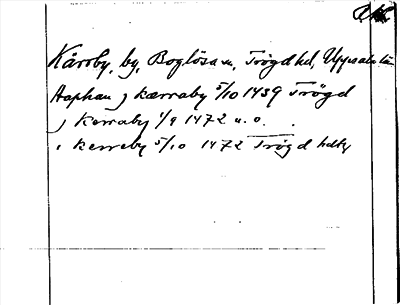 Kärrby, by, Boglösa sn, Trögds hd, Uppsala län
Haphan j kærraby 5/10 1439 Trögd
j Kerraby 1/9 1472 u. o.
i kerreby 5/10 1472 Trögd hdby